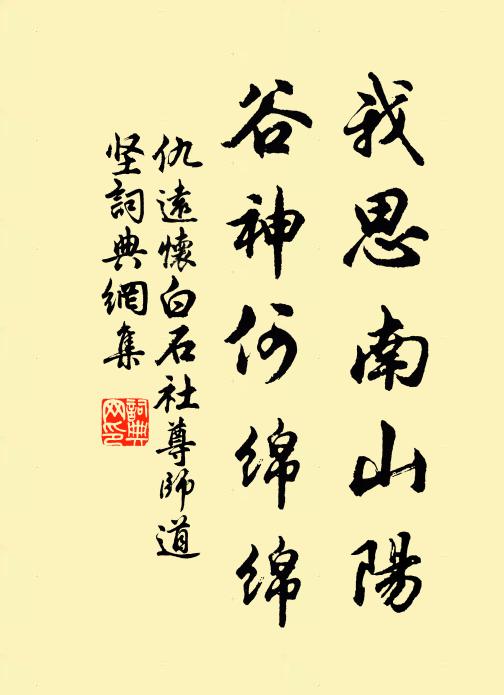 我思南山陽
谷神何綿綿
仇遠懷白石社尊師道
坚詞典網集
詞典
网印